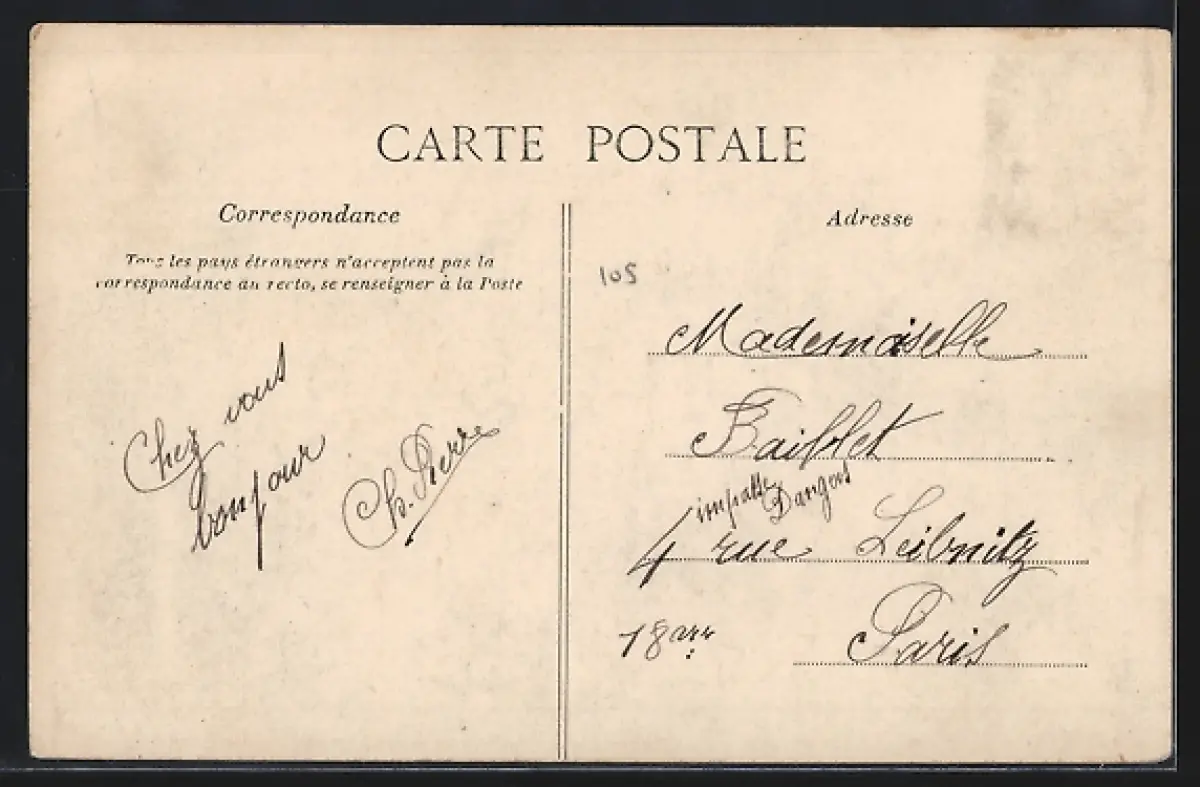 CARTE POSTALE
Correspondance
Tous les pays étrangers n'acceptent pas la
correspondance au recto, se renseigner à la Poste
Chez vous
bonjour
Ch. Pierre
Adresse
105
Mademoiselle
impasse
4 rue Leibnitz
18arr
Paris